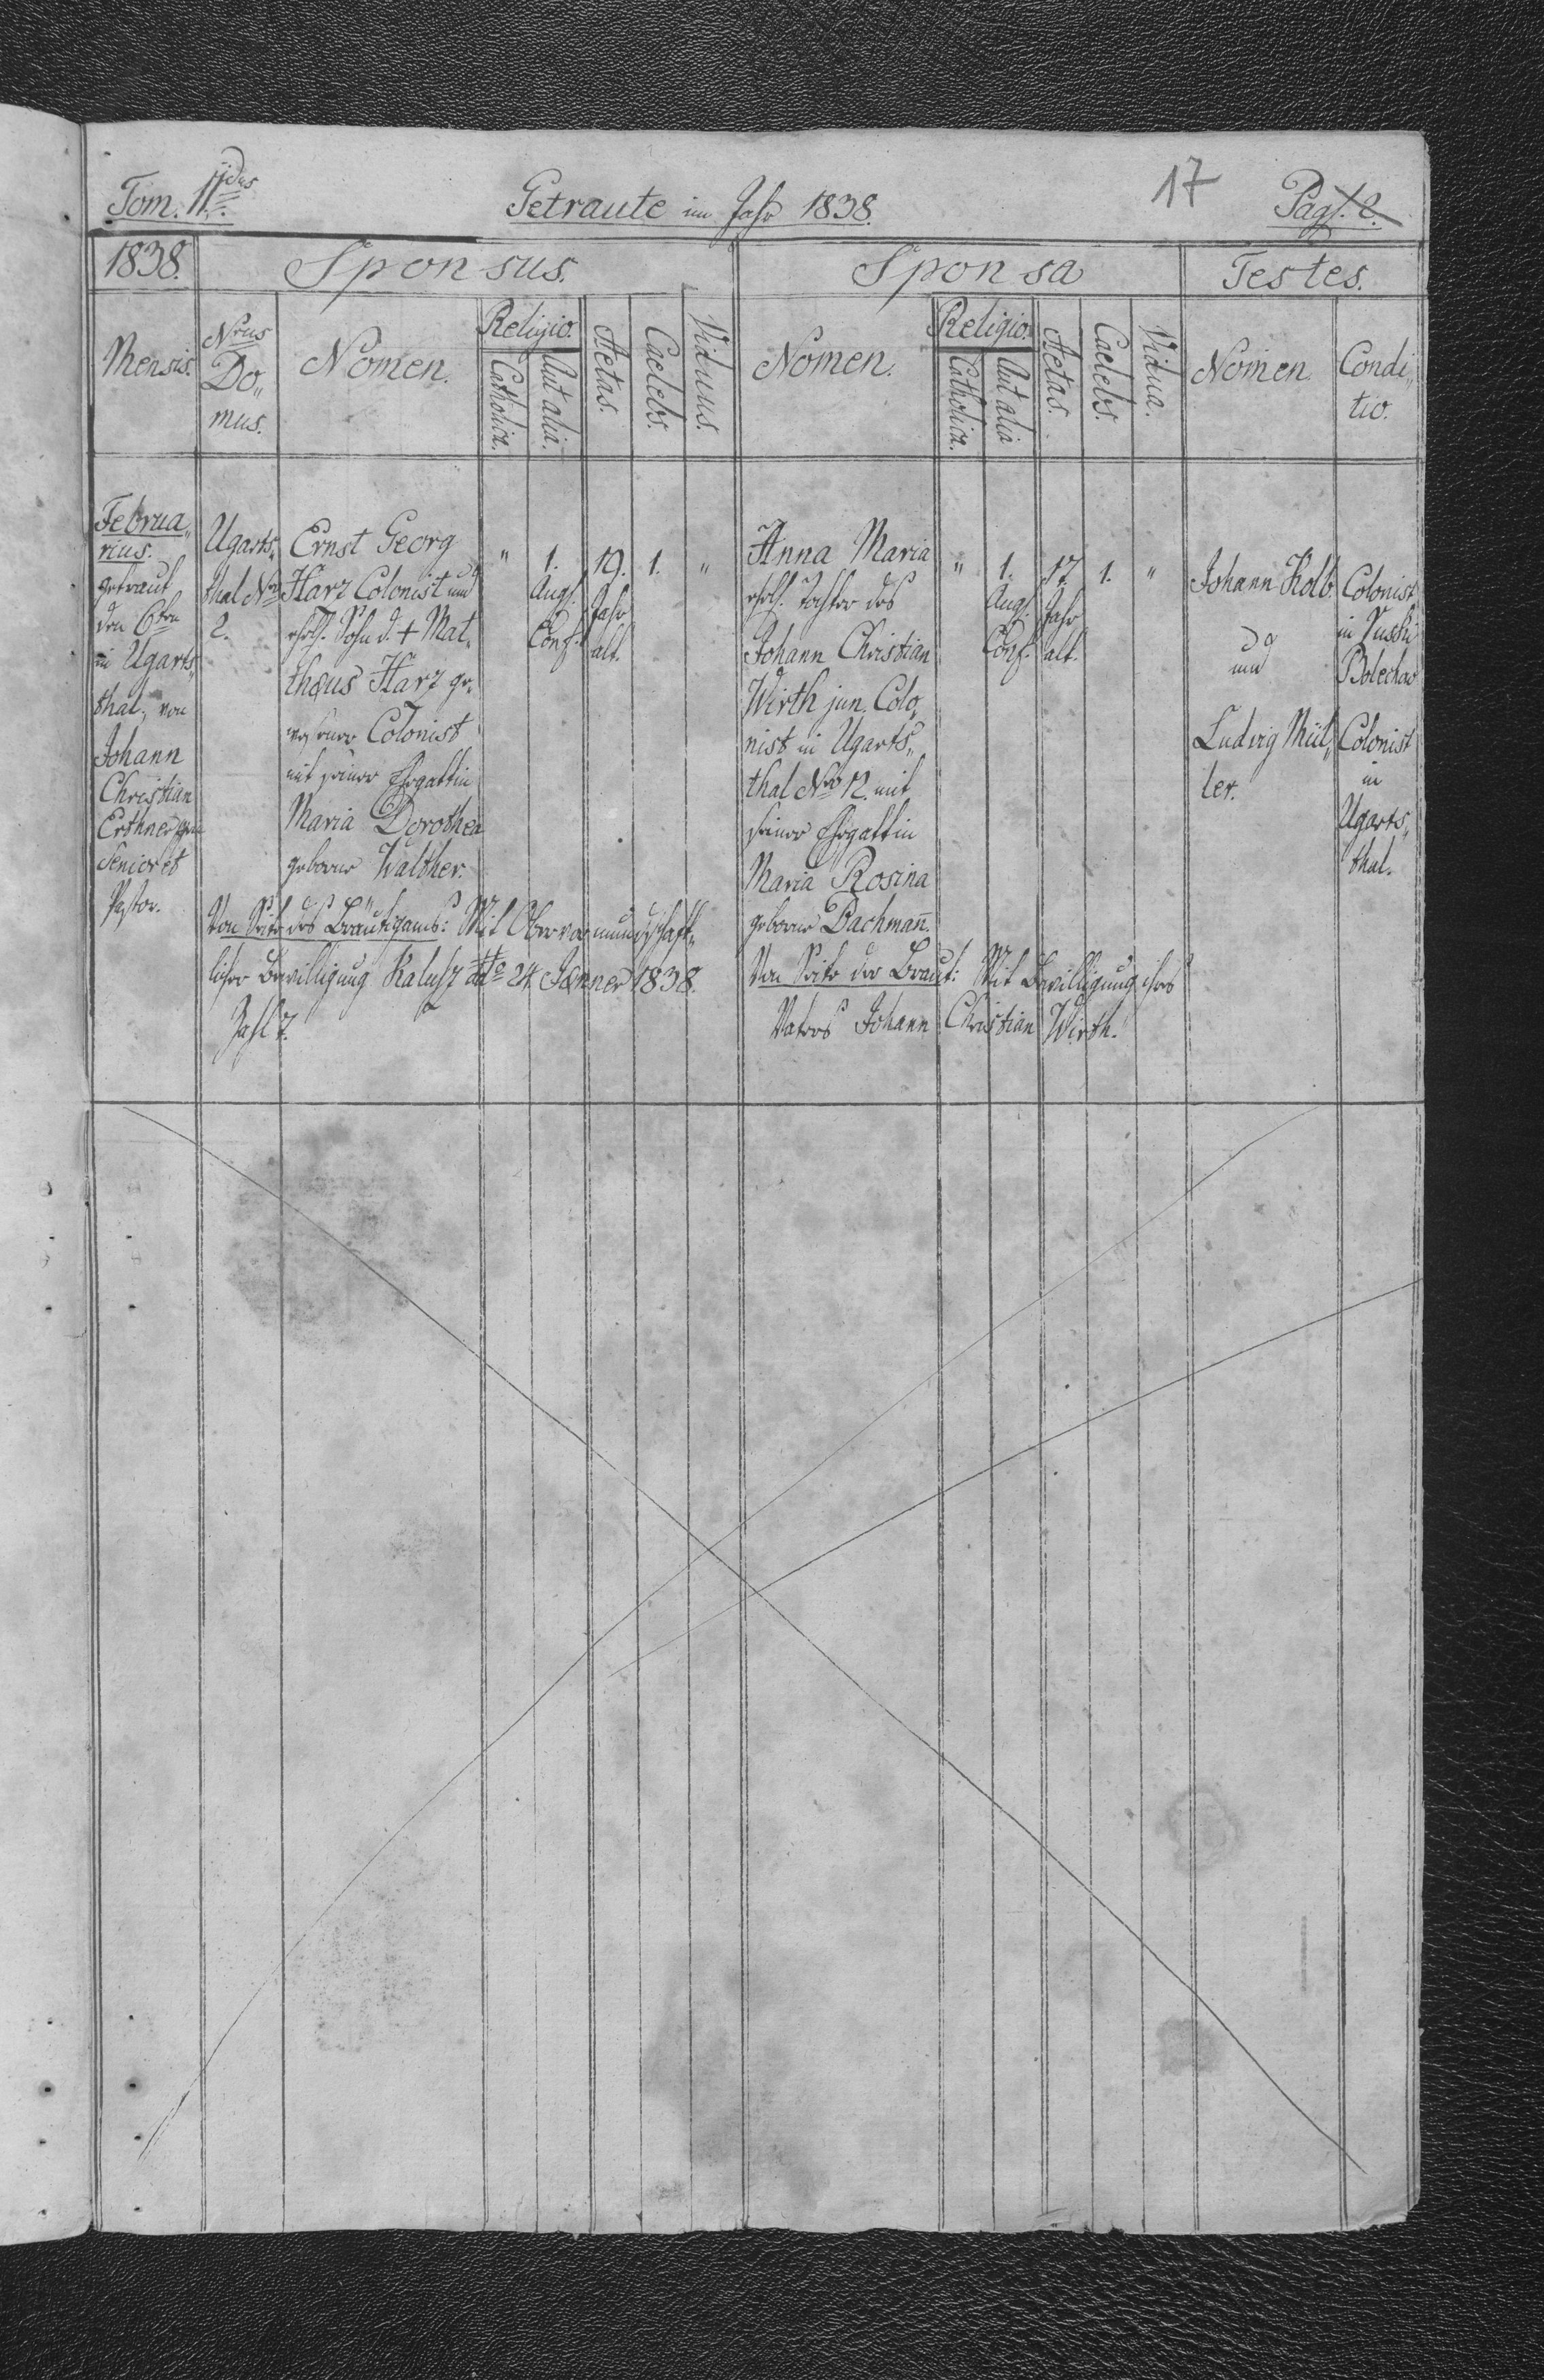 Tom. II.dus
Getraute im Jahr 1838.
17
Pag. 2.
1838.
Sponsus.
Sponsa
Testes.
Mensis.
Nrus
Do„
mus.
Nomen.
Religio.
Catholica.
Aut alia.
Aetas.
Caelebs.
Viduus.
Nomen.
Religio.
Catholica.
Aut alia
Aetas.
Caelebs.
Vidua.
Nomen.
Condi„
tio.
Februa„
rius.
getraut
den 6ten
in Ugarts„
thal, von
Johann
Christian
Erthner
Senior et
Pastor.
Ugarts„
thal Nro
2.
Ernst Georg
Harz Colonist und
ehel. Sohn d. + Mat„
thæus Harz ge„
wesener Colonist
mit seiner Ehgattin
Maria Dorothea
geborne Walther.
"
1.
Augs.
Conf.
19.
Jahr
alt.
1.
"
Anna Maria
ehel. Tochter des
Johann Christian
Wirth jun. Colo„
nist in Ugarts„
thal Nro 12. mit
seiner Ehgattin
Maria Rosina
geborne Bachmañ.
"
1.
Augs.
Conf.
17.
Jahr
alt.
1.
"
Johann Kolb.
und
Ludwig Mül„
ler.
Colonist
in Russki
Bolechow
Colonist
in
Ugarts„
thal.
Von Seite des Bräutigams: Mit Obervormundschaft„
licher Bewilligung Kalusz ddto 24. Jænner 1838.
Zahl 7.
Von Seite der Braut: Mit Bewilligung ihres
Vaters Johann Christian Wirth.